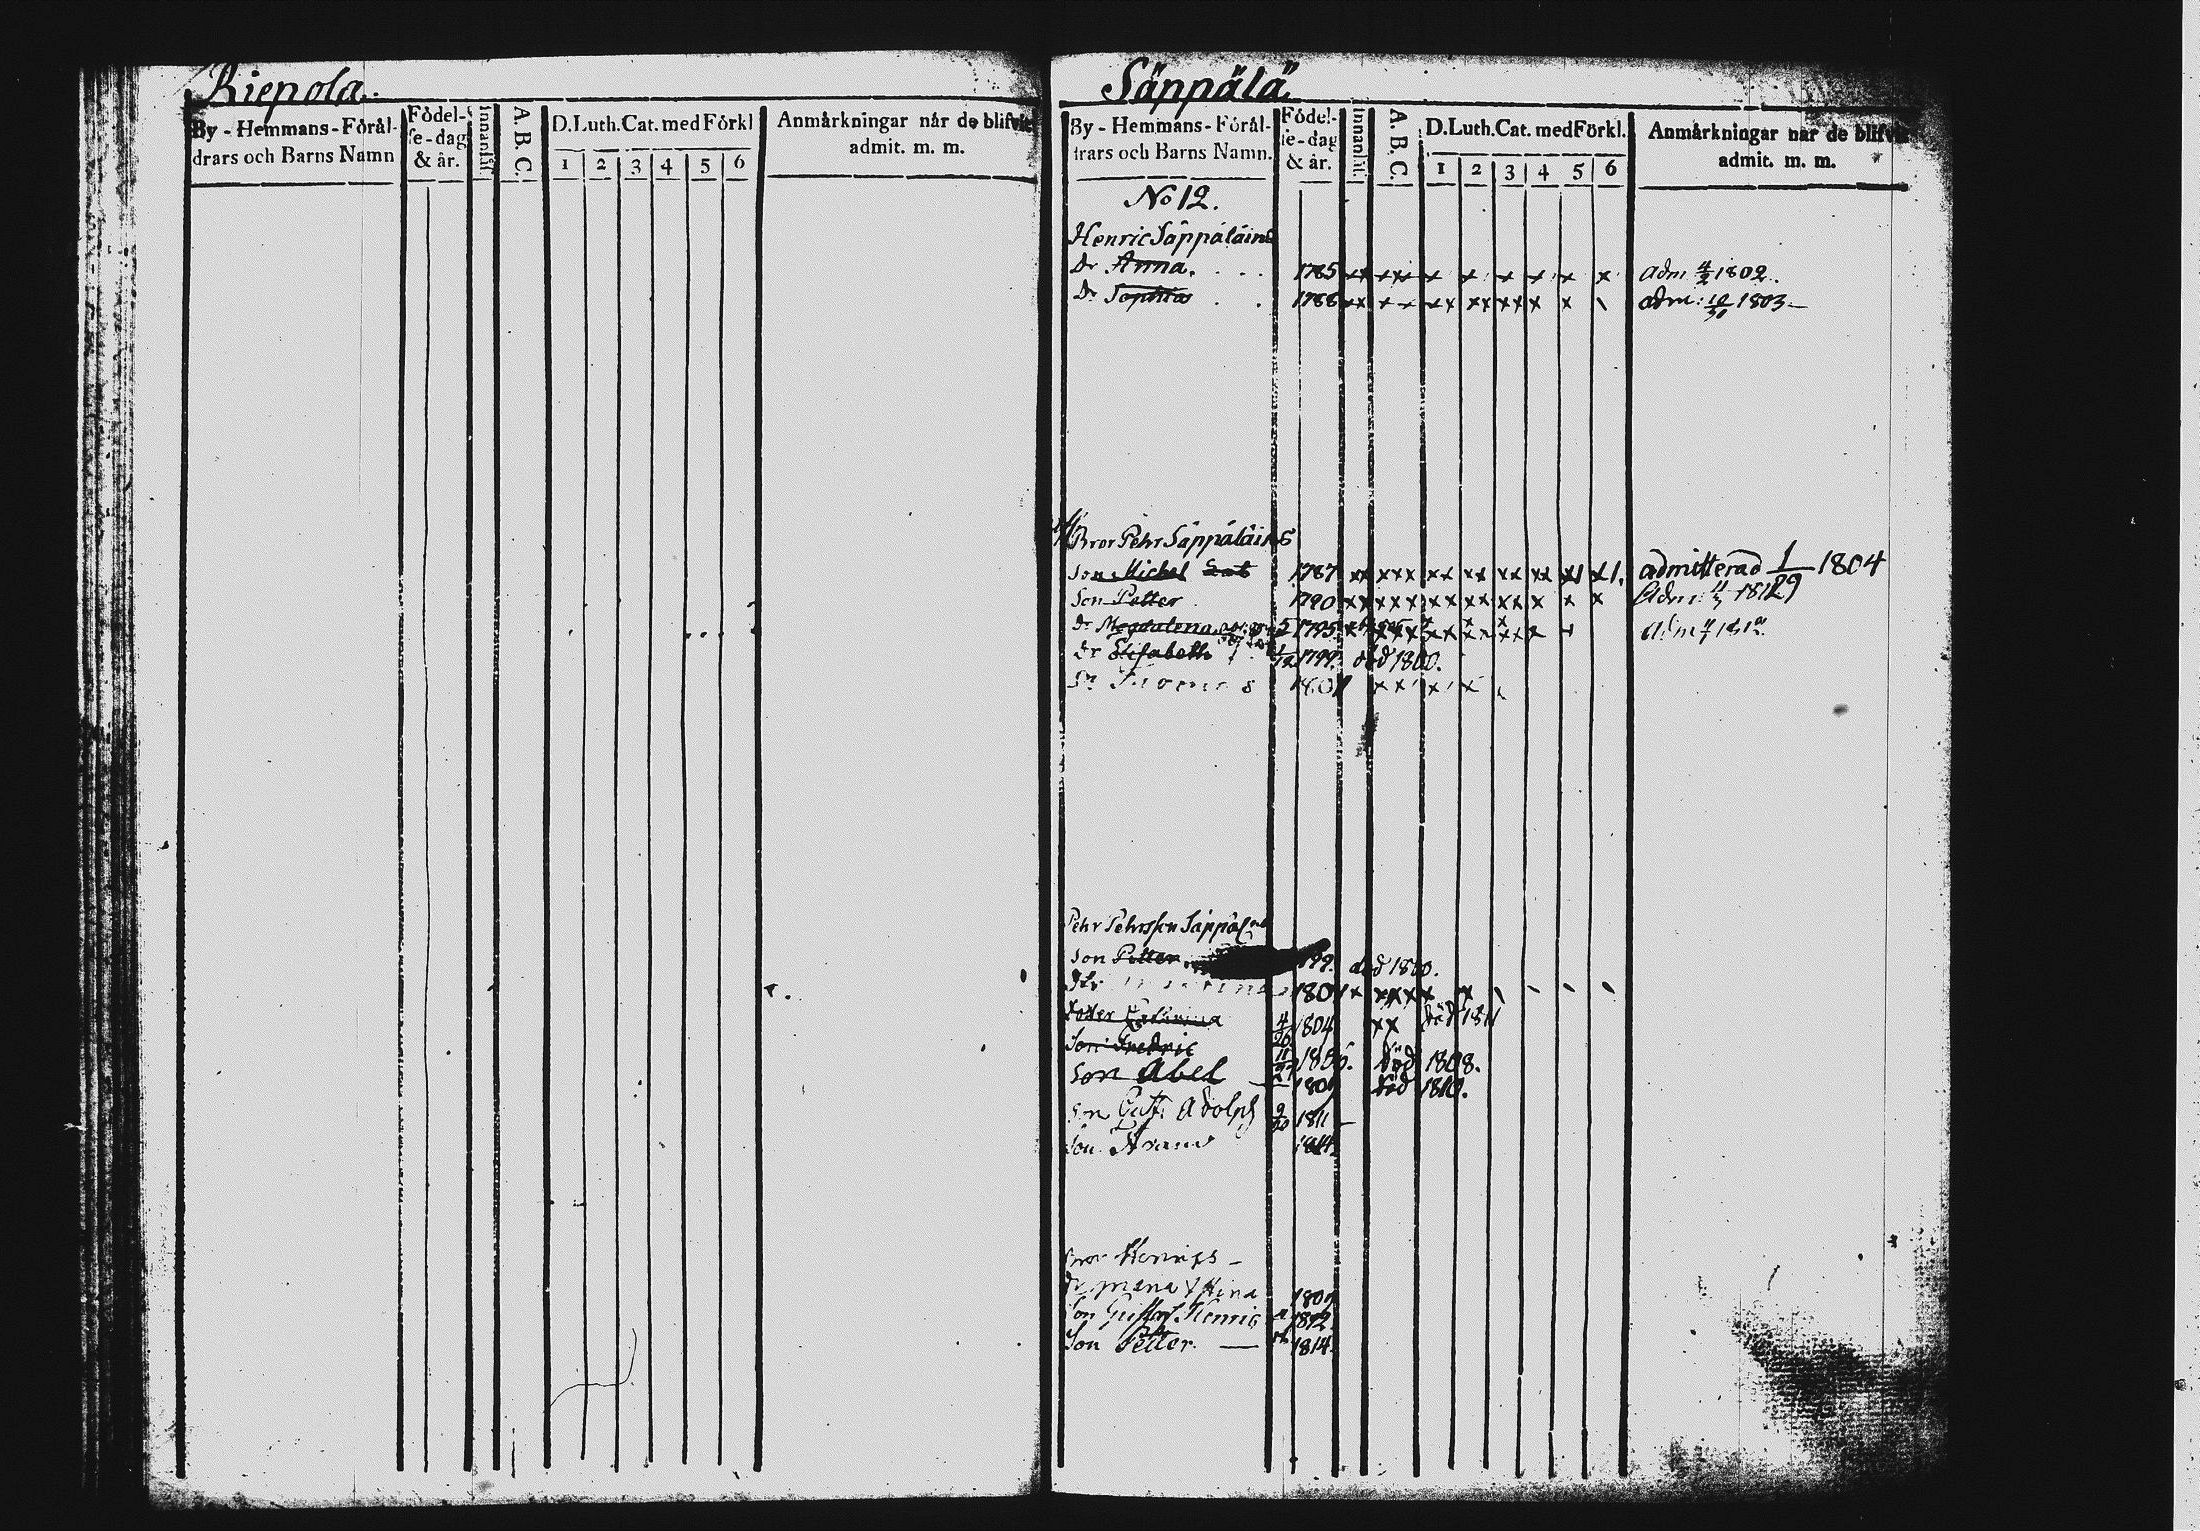 Riepola.
By - Hemmans - Förål-
drars och Barns Namn
Födel-
se-dag
& år.
Innanläs.
A. B. C.
D. Luth. Cat. med Förkl
1 2 3 4 5 6
Anmärkningar når de blifvit
admit. m. m.
Säppälä
By - Hemmans - Förål-
drars och Barns Namn.
Födel-
se-dag
& år.
Innanläs.
A. B. C.
D. Luth. Cat. med Förkl.
1 2 3 4 5 6
Anmärkningar når de blifvit
admit. m. m.
No 12.
Henric Säppäläine
Dr Anna. 1785 adm 4/2 1802.
Dr Sophia 1788 adm: 10/30 1803
Bror Pehr Säppäläine
Son Michel 1787 admitterad 1/29 1804
Son Petter 1790 Adm:
Dr Magdalena 1795 Adm
Dr Elisabeth 1799. död 1800.
1801
Pehr Pehrsson Säppäl
Son Petter 1799. död 1800.
1801
Dotter 4/26 1804 död 1811
Son Fredric 1806. död 1808.
Son Abel 1809 död 1810.
Son Gust. Adolph 9/20 1811
Son 1814
Bror Henrics
1809
Son Gustaf Henric 1812
Son Petter 1814.